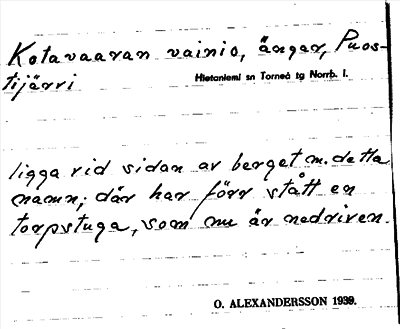 Kotavaaran vainio, ängar, Puos-
tijärvi
Hietaniemi sn Torneå tg Norrb. l.
ligga vid sidan av berget m. detta
namn; där har förr stått en
torpstuga, som nu är nedriven.
O. ALEXANDERSSON 1939.